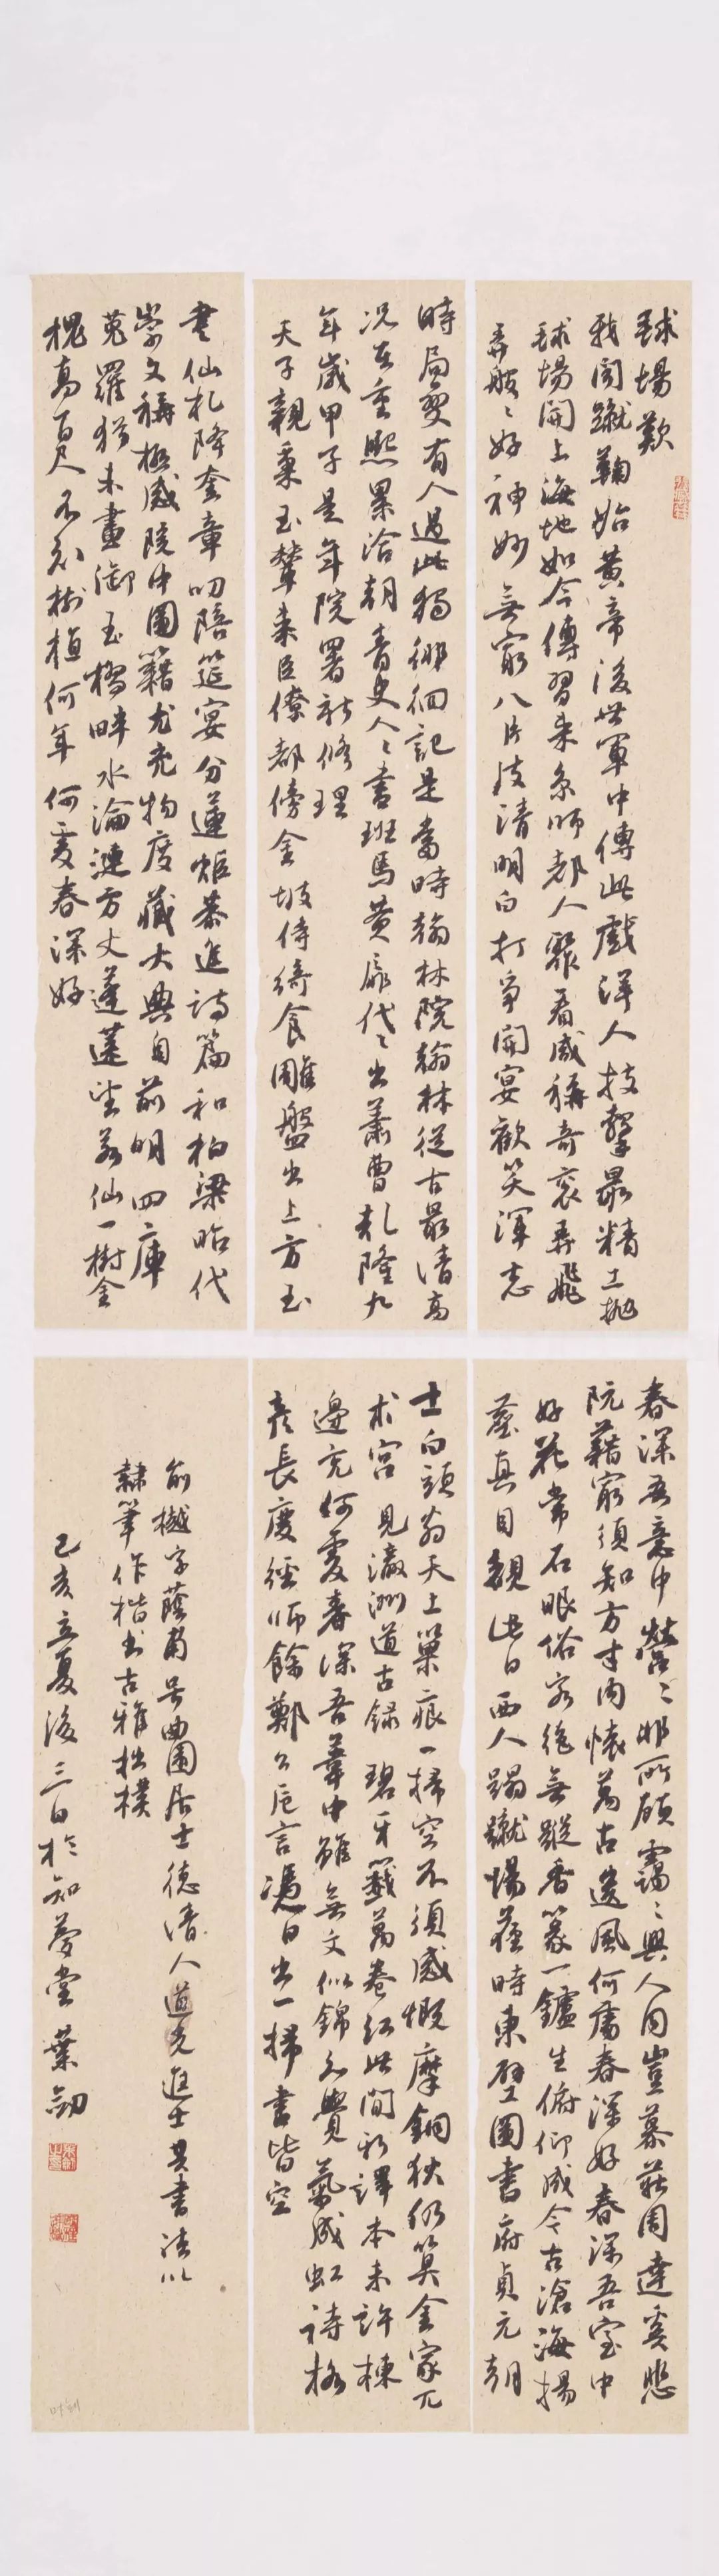 球場歎
我聞蹴鞠始黃帝後世軍中傳此戲洋人技擊最精工拋
球場開上海地如今傳習來京師都人聚看咸稱奇衮弄飛
弄般般好神妙無窮八片皮清明白打爭開宴歡笑渾忘
時局變有人過此獨徘徊記是當時翰林院翰林從古最清高
況在重熙累洽朝青史人人書班馬黃扉代代出蕭曹乾隆九
年歲甲子是年院署新修理
天子親乘玉輦來臣僚都傍金坡侍綺食雕盤出上方玉
書仙札降奎章叨陪筵宴分蓮炬恭進詩篇和柏梁昭代
崇文稱極盛院中圖籍尤充物度藏大典自前明四庫
蒐羅猶未盡御玉橋畔水淪漣方丈蓬蓮望若仙一樹金
槐高百尺不知樹植何年何處春深好
春深吾意中營營非所願靄靄與人同豈慕莊周達奚悲
阮藉窮須知方寸內懷葛古遺風何處春深好春深吾室中
好花常在眼俗客絕無蹤香篆一鑪生俯仰成今古滄海揚
塵真目覩此日西人蹋蹴場舊時東壁圖書府貞元朝
士白頭翁天上巢痕一掃空不須感慨摩銅狄仍算金家兀
朮宮見瀛洲道古錄碧牙籤萬卷紅此間新譯本未許棟
邊充何處春深好春深吾筆中雖無文似錦久覺氣成虹詩格
彥長慶經師餘鄭公卮言憑日出一掃書皆空
俞樾字蔭甫號曲園居士德清人道光進士其書法以
隸筆作楷書古雅拙樸
己亥立夏後三日於知夢堂葉劍
叶剑